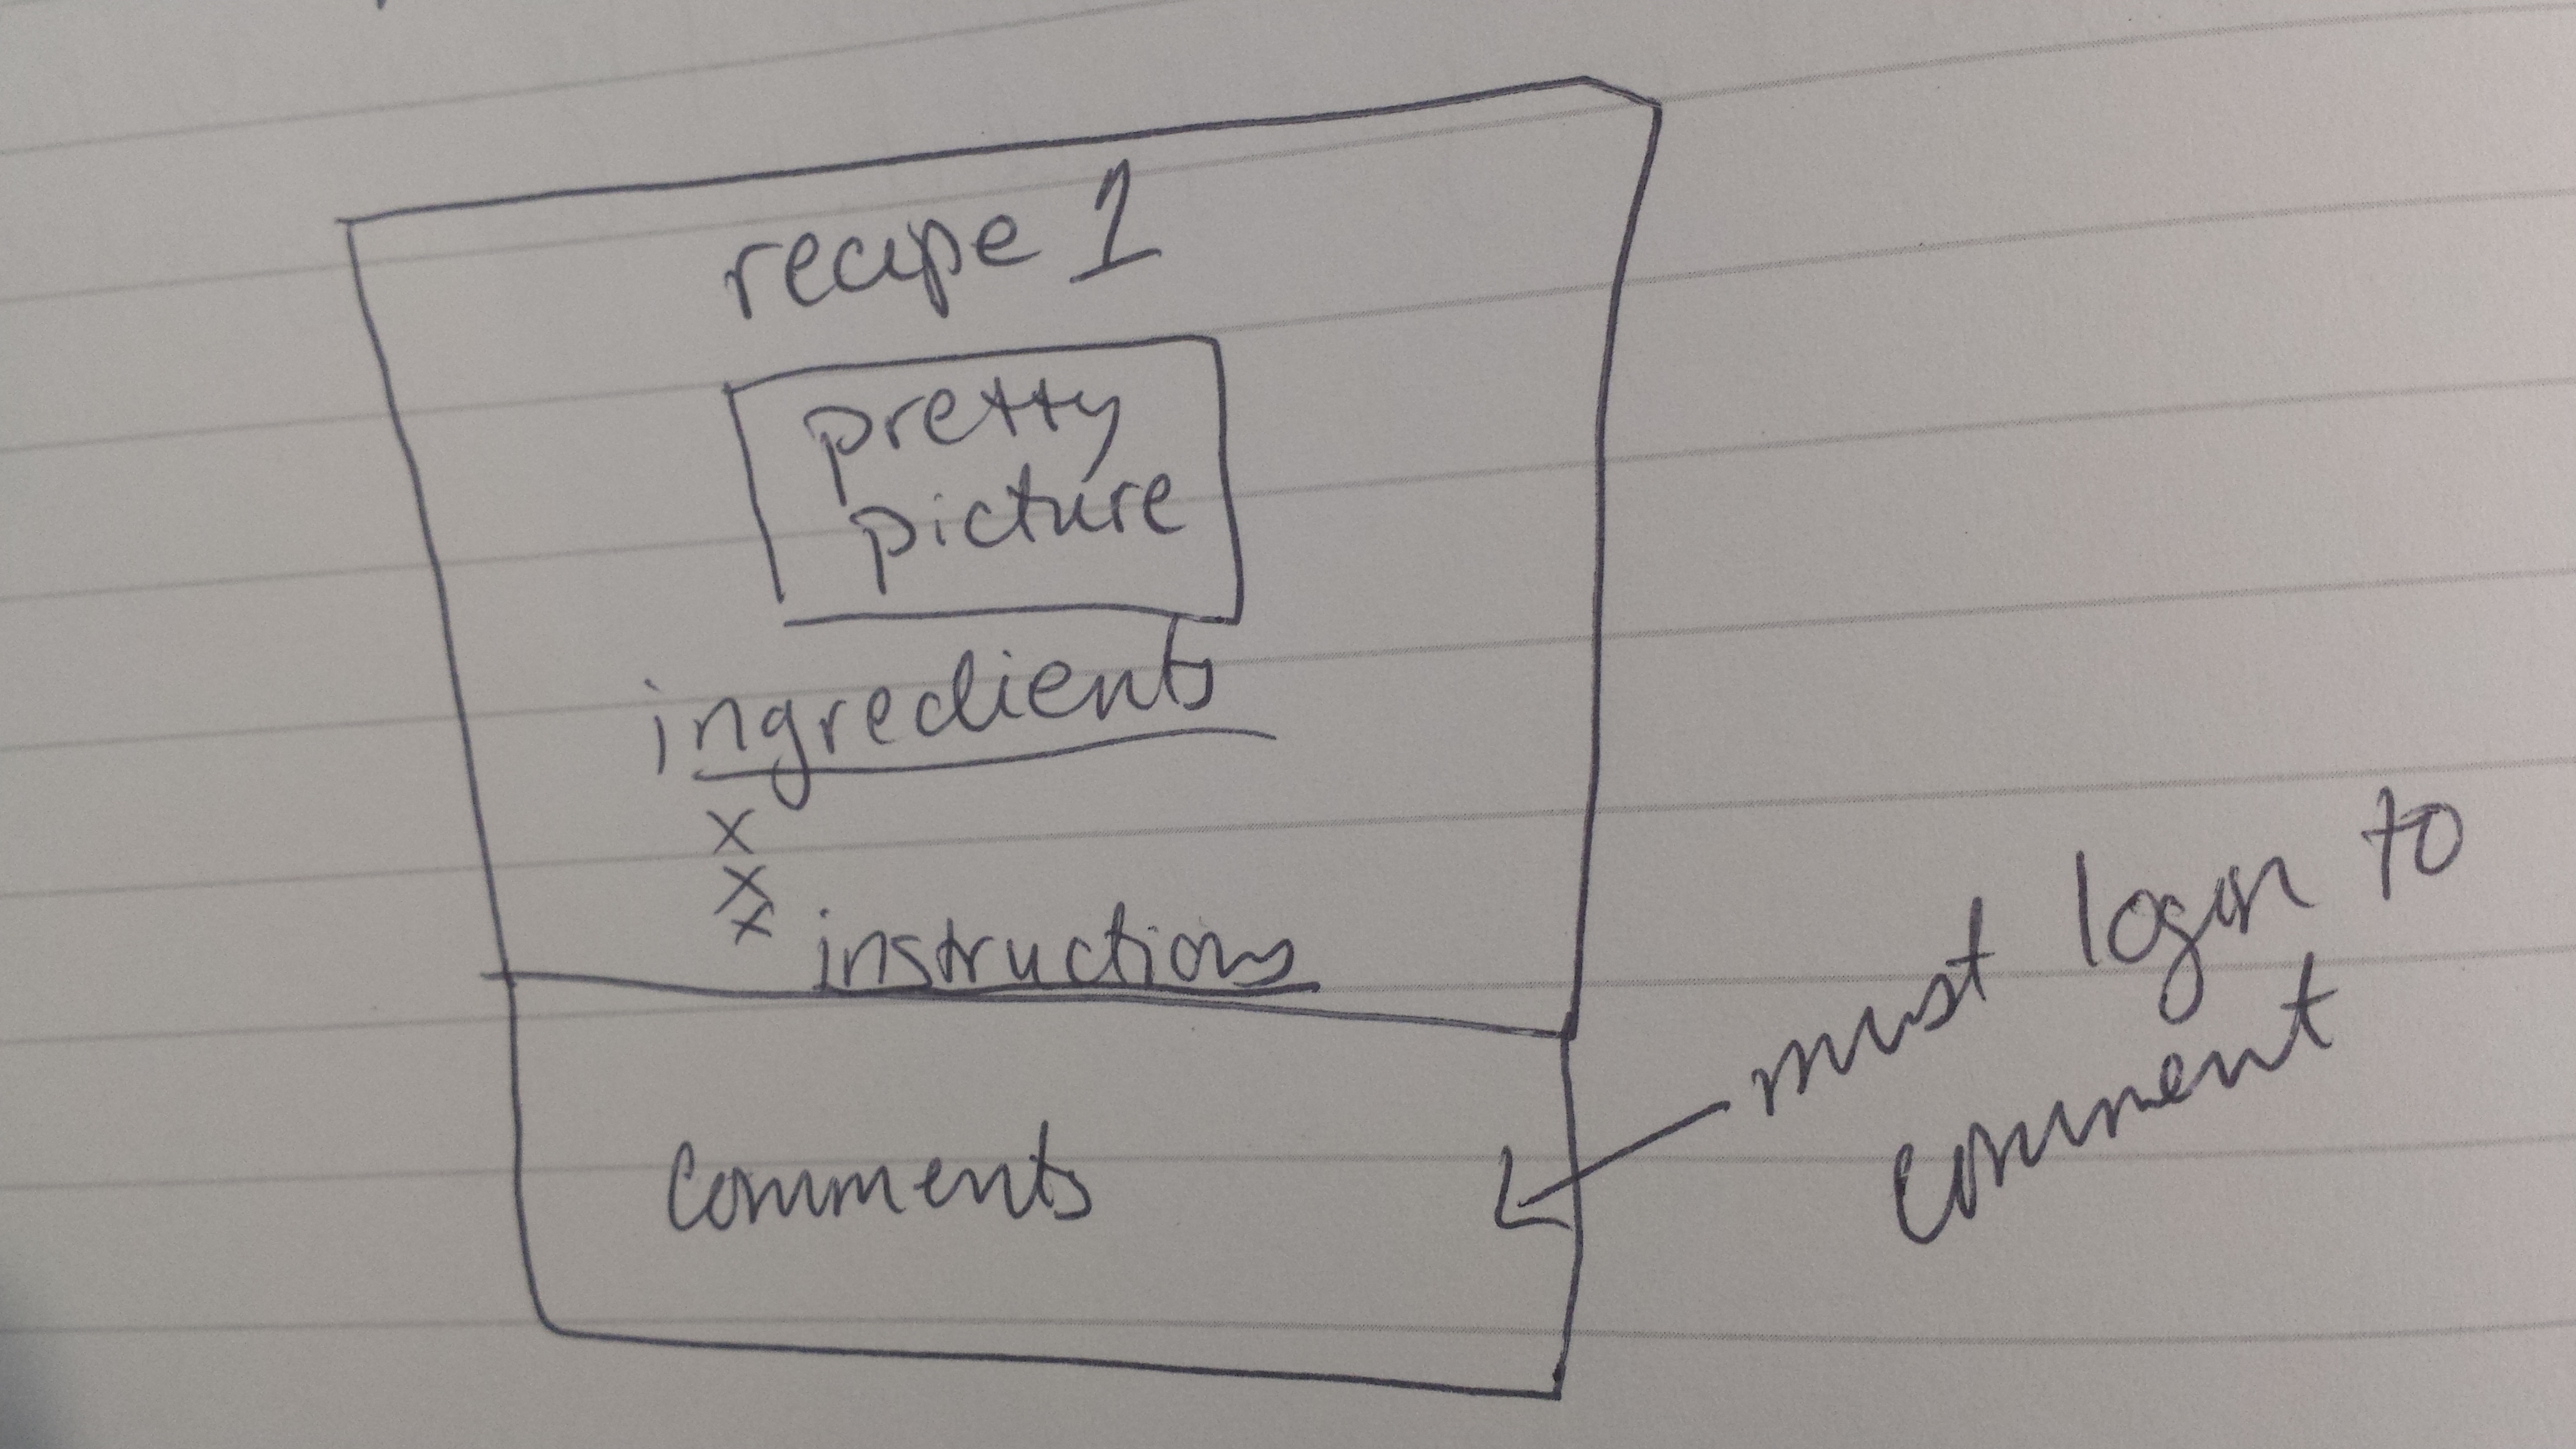 recipe 1
pretty
picture
ingredients
x
x
x
instructions
comments
must login to
comment